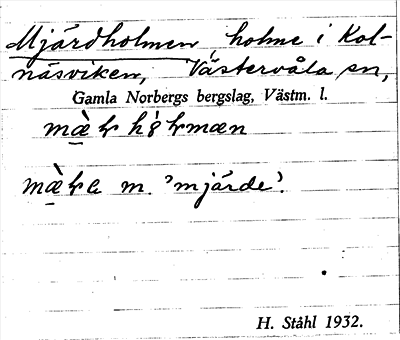 Mjärdholmen, holme i Kol-
näsviken, Västervåla sn,
Gamla Norbergs bergslag, Västm. l.
m. 'mjärde'.
H. Ståhl 1932.